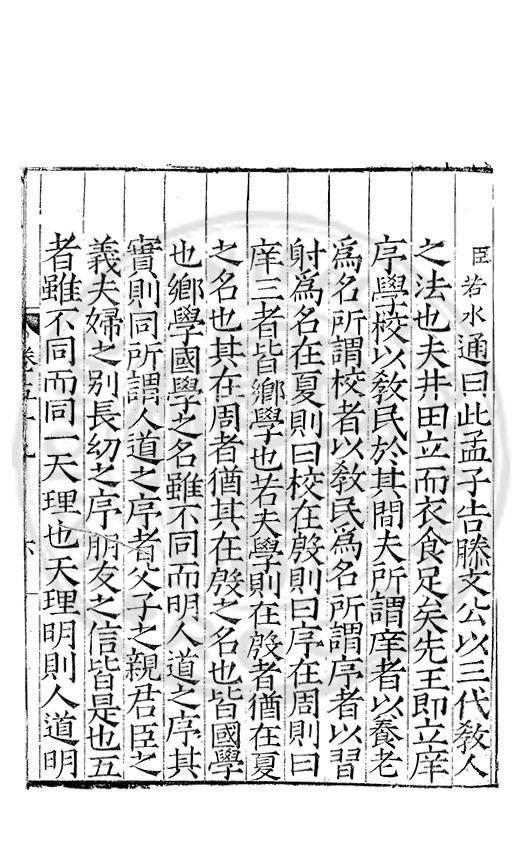 臣若水通曰此孟子告滕文公以三代教人
之法也夫井田立而衣食足矣先王即立庠
序學校以教民於其間夫所謂庠者以養老
爲名所謂校者以教民爲名所謂序者以習
射爲名在夏則曰校在殷則曰序在周則曰
庠三者皆鄉學也若夫學則在殷者猶在夏
之名也其在周者猶其在殷之名也皆國學
也鄉學國學之名雖不同而明人道之序其
實則同所謂人道之序者父子之親君臣之
義夫婦之別長幼之序朋友之信皆是也五
者雖不同而同一天理也天理明則人道明
卷五十
六